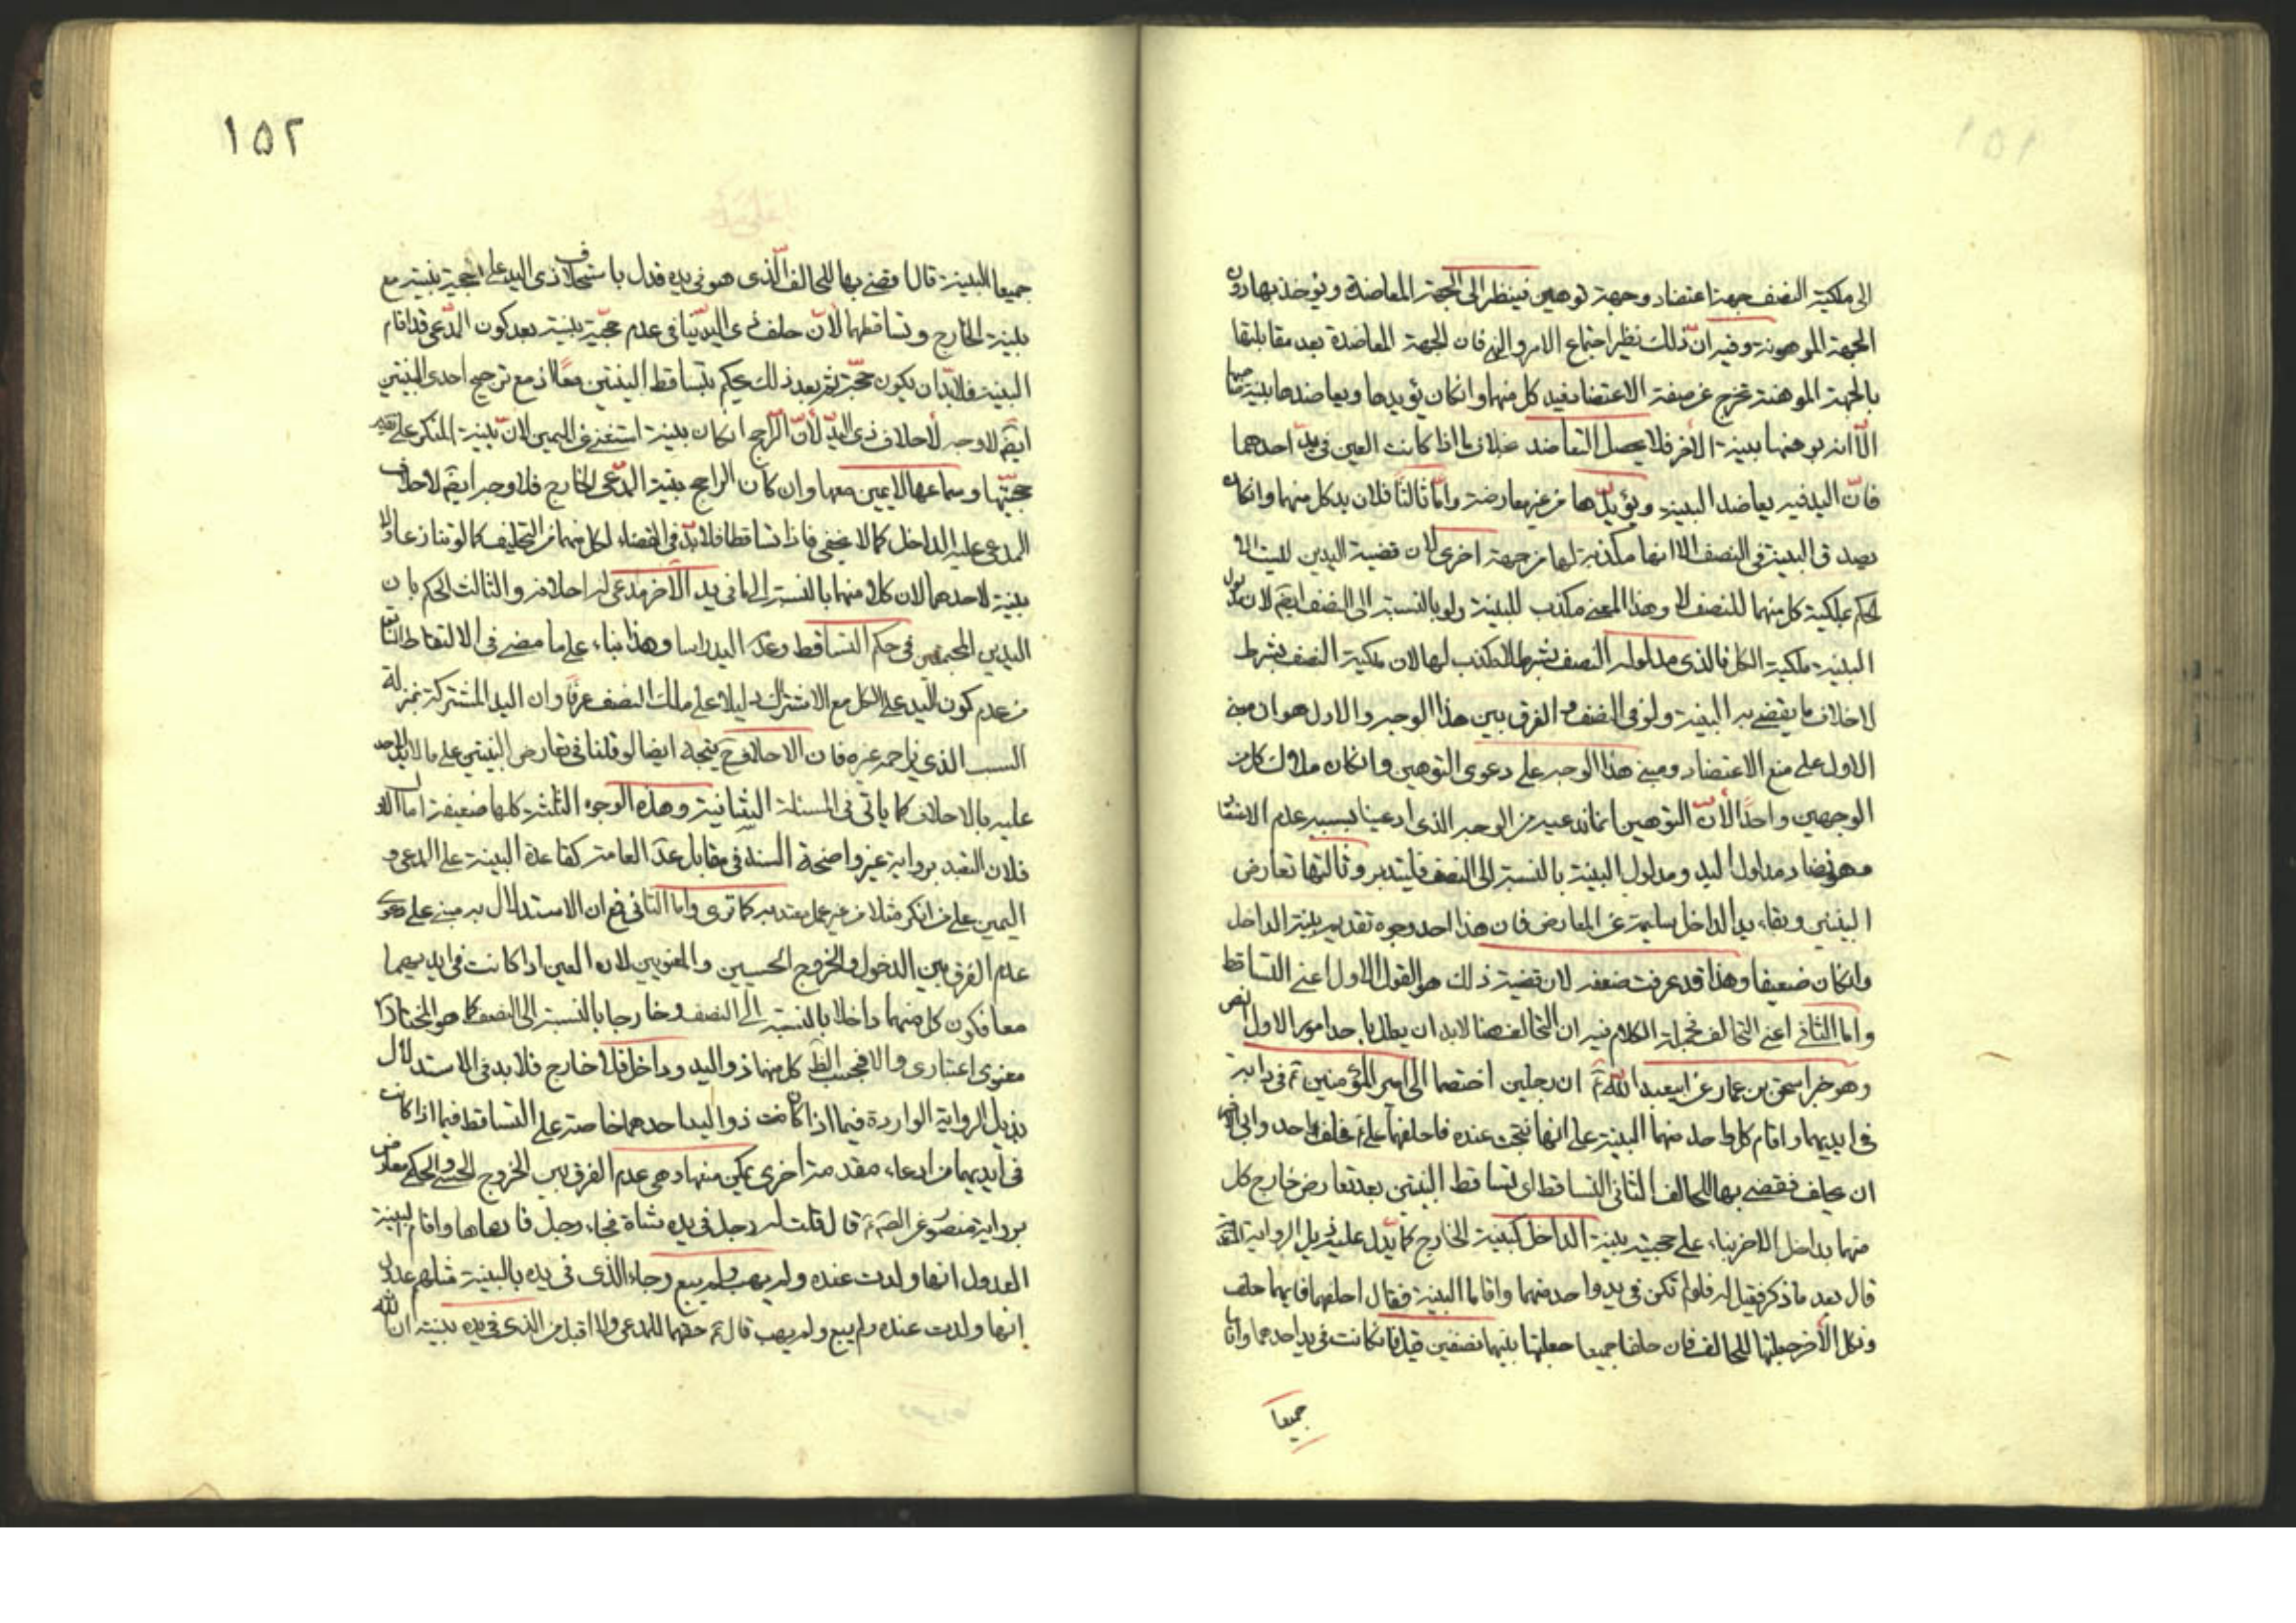 ١٥١
الى ملكية النصف جهة اعتضاد وجهة توهين فينظر الى الجهة المعاضدة ويؤخذ بها دون
الجهة الموهونة وفيه ان ذلك نظير اجتماع الامر والنهى فان الجهة المعاضدة بعد مقابلتها
بالجهة الموهنة تخرج عن صفة الاعتضاد فيد كل منهما وانكان يؤيدها ويعاضدها بينة
الا انه يوهنها بينة الاخر فلا يحصل التعاضد بخلاف ما اذا كانت العين فى يد احدهما
فان اليد فيه يعاضد البينة ويؤيدها من غير معارضة واما ثالثا فلان يد كل منهما وانكان
يصدق البينة فى النصف الا انها مكذبة لها من جهة اخرى لان قضية اليدين ليست الا
الحكم بملكية كل منهما للنصف لا وهذا المعنى مكذب للبينة ولو بالنسبة الى النصف ايضا لان مدلول
البينة ملكية الكل فالذى مدلوله النصف بشرط لا مكذب لها لان ملكية النصف بشرط
لا خلاف ما يقتضيه البينة ولو فى النصف والفرق بين هذا الوجه والاول هو ان مبنى
الاول على منع الاعتضاد ومبنى هذا الوجه على دعوى التوهين وانكان ملاك كل من
الوجهين واحدا لان التوهين انما ندعيه من الوجه الذى ادعينا بسببه عدم الاعتضاد
وهو تضاد مدلول اليد ومدلول البينة بالنسبة الى النصف فليتدبر وثالثها تعارض
البينتين وبقاء يد الداخل سليمة عن المعارض فان هذا احد وجوه تقديم بينة الداخل
وانكان ضعيفا وهذا قد عرفت ضعفه لان قضية ذلك هو القول الاول اعنى التساقط
واما الثانى اعنى التحالف فجملة الكلام فيه ان التحالف هنا لابد ان يعلل باحد امور الاول النص
وهو خبر اسحق بن عمار عن ابيعبد الله ان رجلين اختصما الى امير المؤمنين فى دابة
فى ايديهما واقام كل واحد منهما البينة على انها نتجت عنده فاحلفهما على فحلف احدهما وابى الاخر
ان يحلف فقضى بها للحالف الثانى التساقط اى تساقط البينتين بعد تعارض خارج كل
منهما بداخل الاخر بناء على حجية بينة الداخل كبينة الخارج كما يدل عليه ذيل الرواية المتقدمة
قال بعد ما ذكر فقيل له فلو لم تكن فى يد واحد منهما واقاما البينة فقال احلفهما فايهما حلف
ونكل الاخر جعلتها للحالف فان حلفا جميعا جعلتها بينهما نصفين قيل فان كانت فى يد احدهما واقاما
جميعا
١٥٢
جميعا البينة قال اقضى بها للحالف الذى هو فى يده فدل باستحلاف ذى اليد على حجية بينته مع
بينة الخارج وتساقطهما لان حلف ذى اليد ينافى عدم حجية بينته بعد كون المدعى قد اقام
البينة فلابد ان يكون حجة ثم بعد ذلك يحكم بتساقط البينتين معا اذ مع ترجيح احدى البينتين
ايضا لا وجه لاحلاف ذى اليد لان الراجح انكان بينته استغنى عن اليمين لان بينة المنكر على تقدير
حجيتها وسماعها لا يمين معها وان كان الراجح بينة المدعى الخارج فلا وجه ايضا لاحلاف
المدعى عليه الداخل كما لا يخفى فاذا تساقطا فلابد فى القضاء لكل منهما من التحليف كما لو تنازعا ولا
بينة لاحدهما لان كلا منهما بالنسبة الى ما فى يد الاخر مدعى له احلافه والثالث الحكم بان
اليدين المجتمعين فى حكم التساقط وعدم اليد راسا وهذا بناء على ما مضى فى الالتقاط
من عدم كون اليد على الكل مع الاشتراك دليلا على ملك النصف عرفا وان اليد المشتركة بمنزلة
السبب الذى يزاحمه غيره فان الاحلاف ح يتجه ايضا لو قلنا فى تعارض البينتين على ما لا يد لاحد
عليه بالاحلاف كما ياتى فى المسئلة الثانية وهذه الوجوه الثلثة كلها ضعيفة اما الاول
فلان التعبد برواية غير واضحة السند فى مقابل عدة العامة كقاعدة البينة على المدعى و
اليمين على من انكر مثلا من غير عمل معتد به كما ترى واما الثانى فمع ان الاستدلال به مبنى على دعوى
عدم الفرق بين الدخول والخروج الحسيين والمعنويين لان العين اذا كانت فى ايديهما
معا فكون كل منهما داخلا بالنسبة الى النصف وخارجا بالنسبة الى النصف كما هو المختار
معنوى اعتبارى والا فبحسب الظ كل منهما ذو اليد وداخل فلا خارج فلابد فى الاستدلال
بذيل الرواية الواردة فيما اذا كانت ذو اليد احدهما خاصة على التساقط فيما اذا كانت
فى ايديهما من ادعاء مقدمة اخرى يمكن منعها وهى عدم الفرق بين الخروج الحسى والحكمى معارض
برواية منصور عن الصم قال قلت له رجل فى يده شاة فجاء رجل فادعاها واقام البينة
العدول انها ولدت عنده ولم يهب ولم يبع وجاء الذى فى يده بالبينة مثلهم عدول
انها ولدت عنده ولم يبع ولم يهب قال حقها للمدعى ولا اقبل من الذى فى يده بينة ان الله